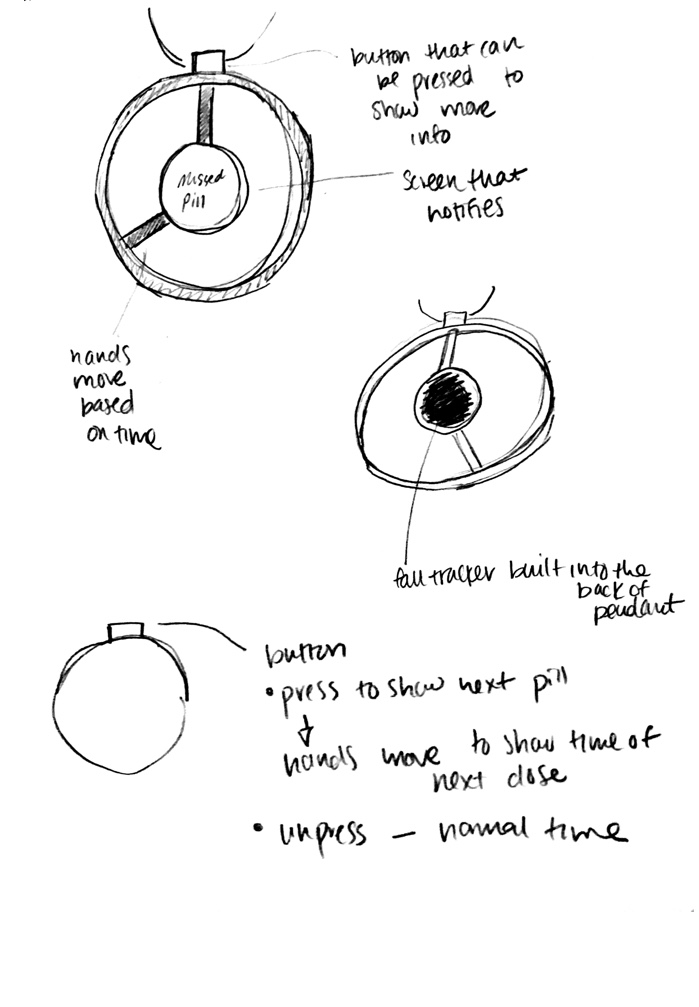 button that can
be pressed to
show more
info
Missed
pill
Screen that
notifies
hands
move
based
on time
fall tracker built into the
back of
pendant
button
• press to show next pill
↓
hands move to show time of
next dose
• unpress — normal time